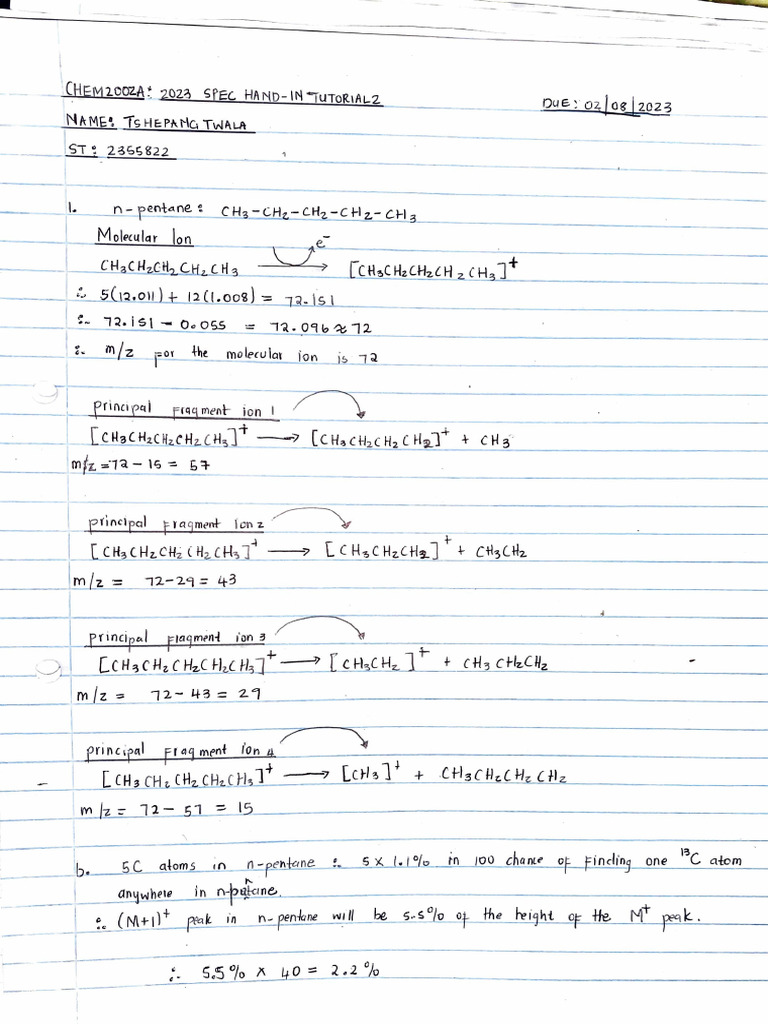 CHEM2002A: 2023 SPEC HAND-IN TUTORIAL 2
DUE: 02/08/2023
NAME: TSHEPANG TWALA
ST: 2355822
1. n-pentane: CH3-CH2-CH2-CH2-CH3
Molecular Ion
e⁻
CH3CH2CH2CH2CH3 → [CH3CH2CH2CH2CH3]⁺
∴ 5(12.011) + 12(1.008) = 72.151
∴ 72.151 - 0.055 = 72.096 ≈ 72
∴ m/z for the molecular ion is 72
principal fragment ion 1
[CH3CH2CH2CH2CH3]⁺ → [CH3CH2CH2CH2]⁺ + CH3
m/z = 72 - 15 = 57
principal fragment ion 2
[CH3CH2CH2CH2CH3]⁺ → [CH3CH2CH2]⁺ + CH3CH2
m/z = 72-29 = 43
principal fragment ion 3
[CH3CH2CH2CH2CH3]⁺ → [CH3CH2]⁺ + CH3CH2CH2
m/z = 72-43 = 29
principal fragment ion 4
[CH3CH2CH2CH2CH3]⁺ → [CH3]⁺ + CH3CH2CH2CH2
m/z = 72 - 57 = 15
b. 5C atoms in n-pentane ∴ 5 x 1.1% in 100 chance of finding one ¹³C atom
anywhere in
∴ (M+1)⁺ peak in n-pentane will be 5.5% of the height of the M⁺ peak.
∴ 5.5% x 40 = 2.2%